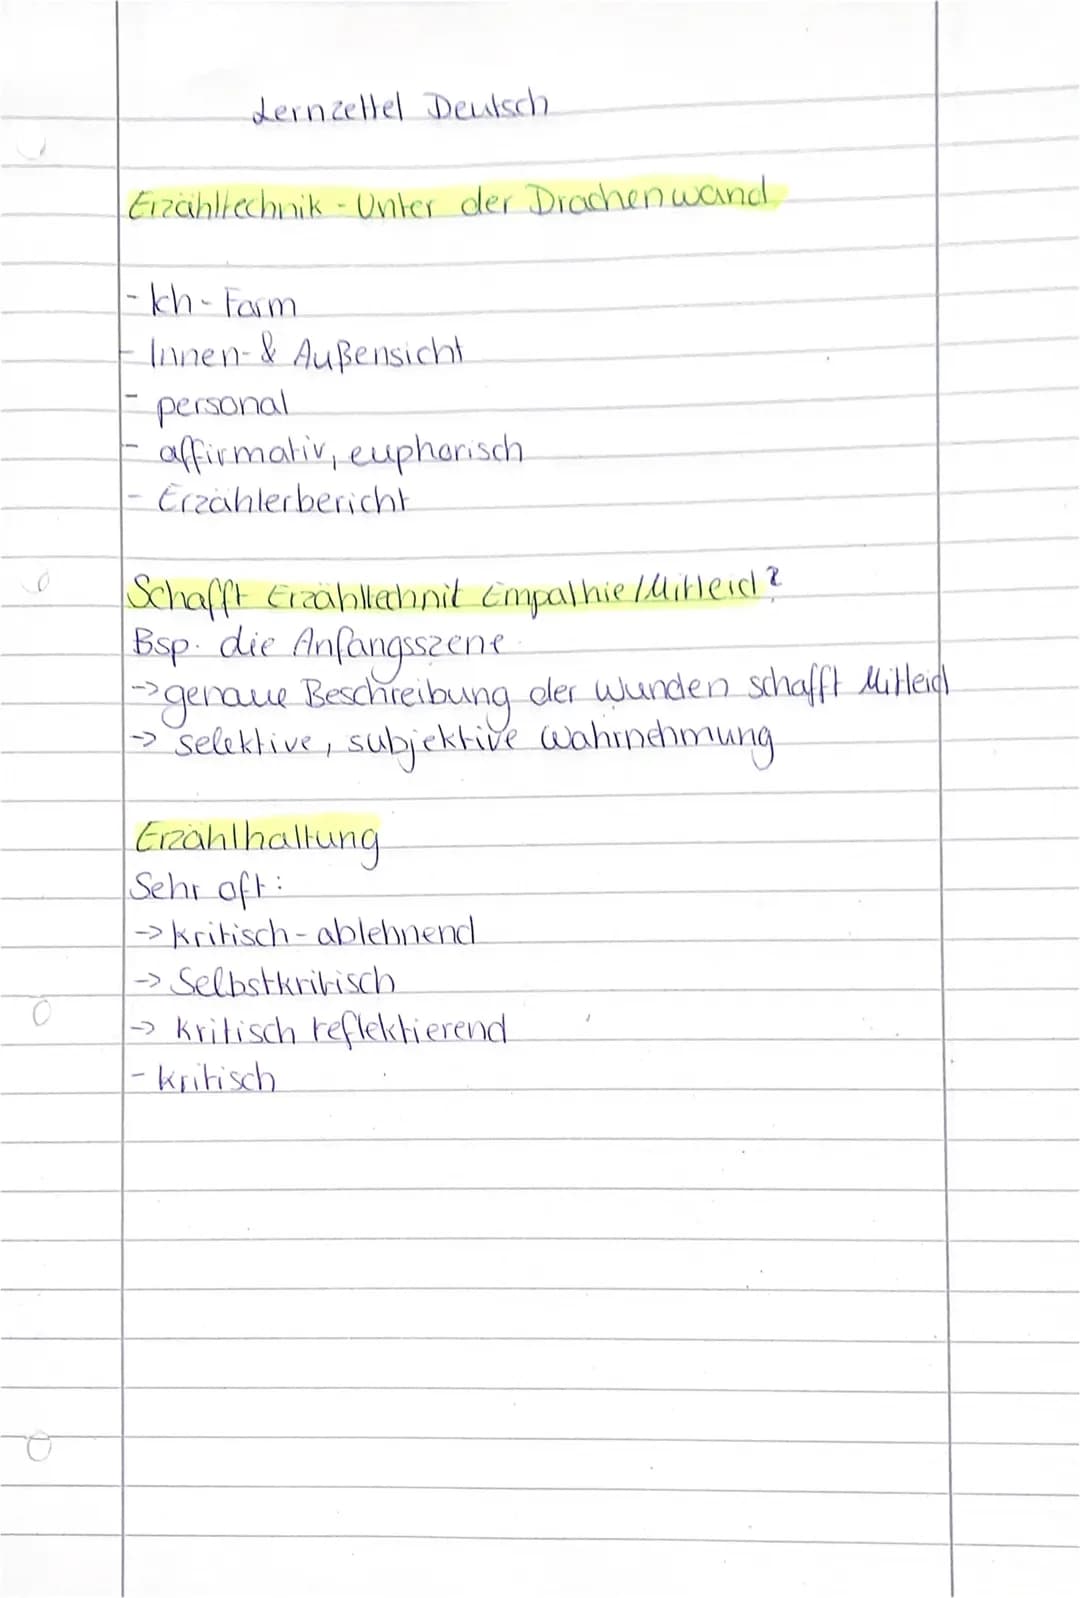 Lernzettel Deutsch
Erzähltechnik - Unter der Drachenwand
- Ich-Form
- Innen- & Außensicht
- personal
- affirmativ, euphorisch
- Erzählerbericht
Schafft Erzähltechnik Empathie/Mitleid?
Bsp. die Anfangsszene
-> genaue Beschreibung der Wunden schafft Mitleid
-> selektive, subjektive Wahrnehmung
Erzählhaltung
Sehr oft:
-> kritisch-ablehnend
-> Selbstkritisch
-> kritisch reflektierend
- kritisch